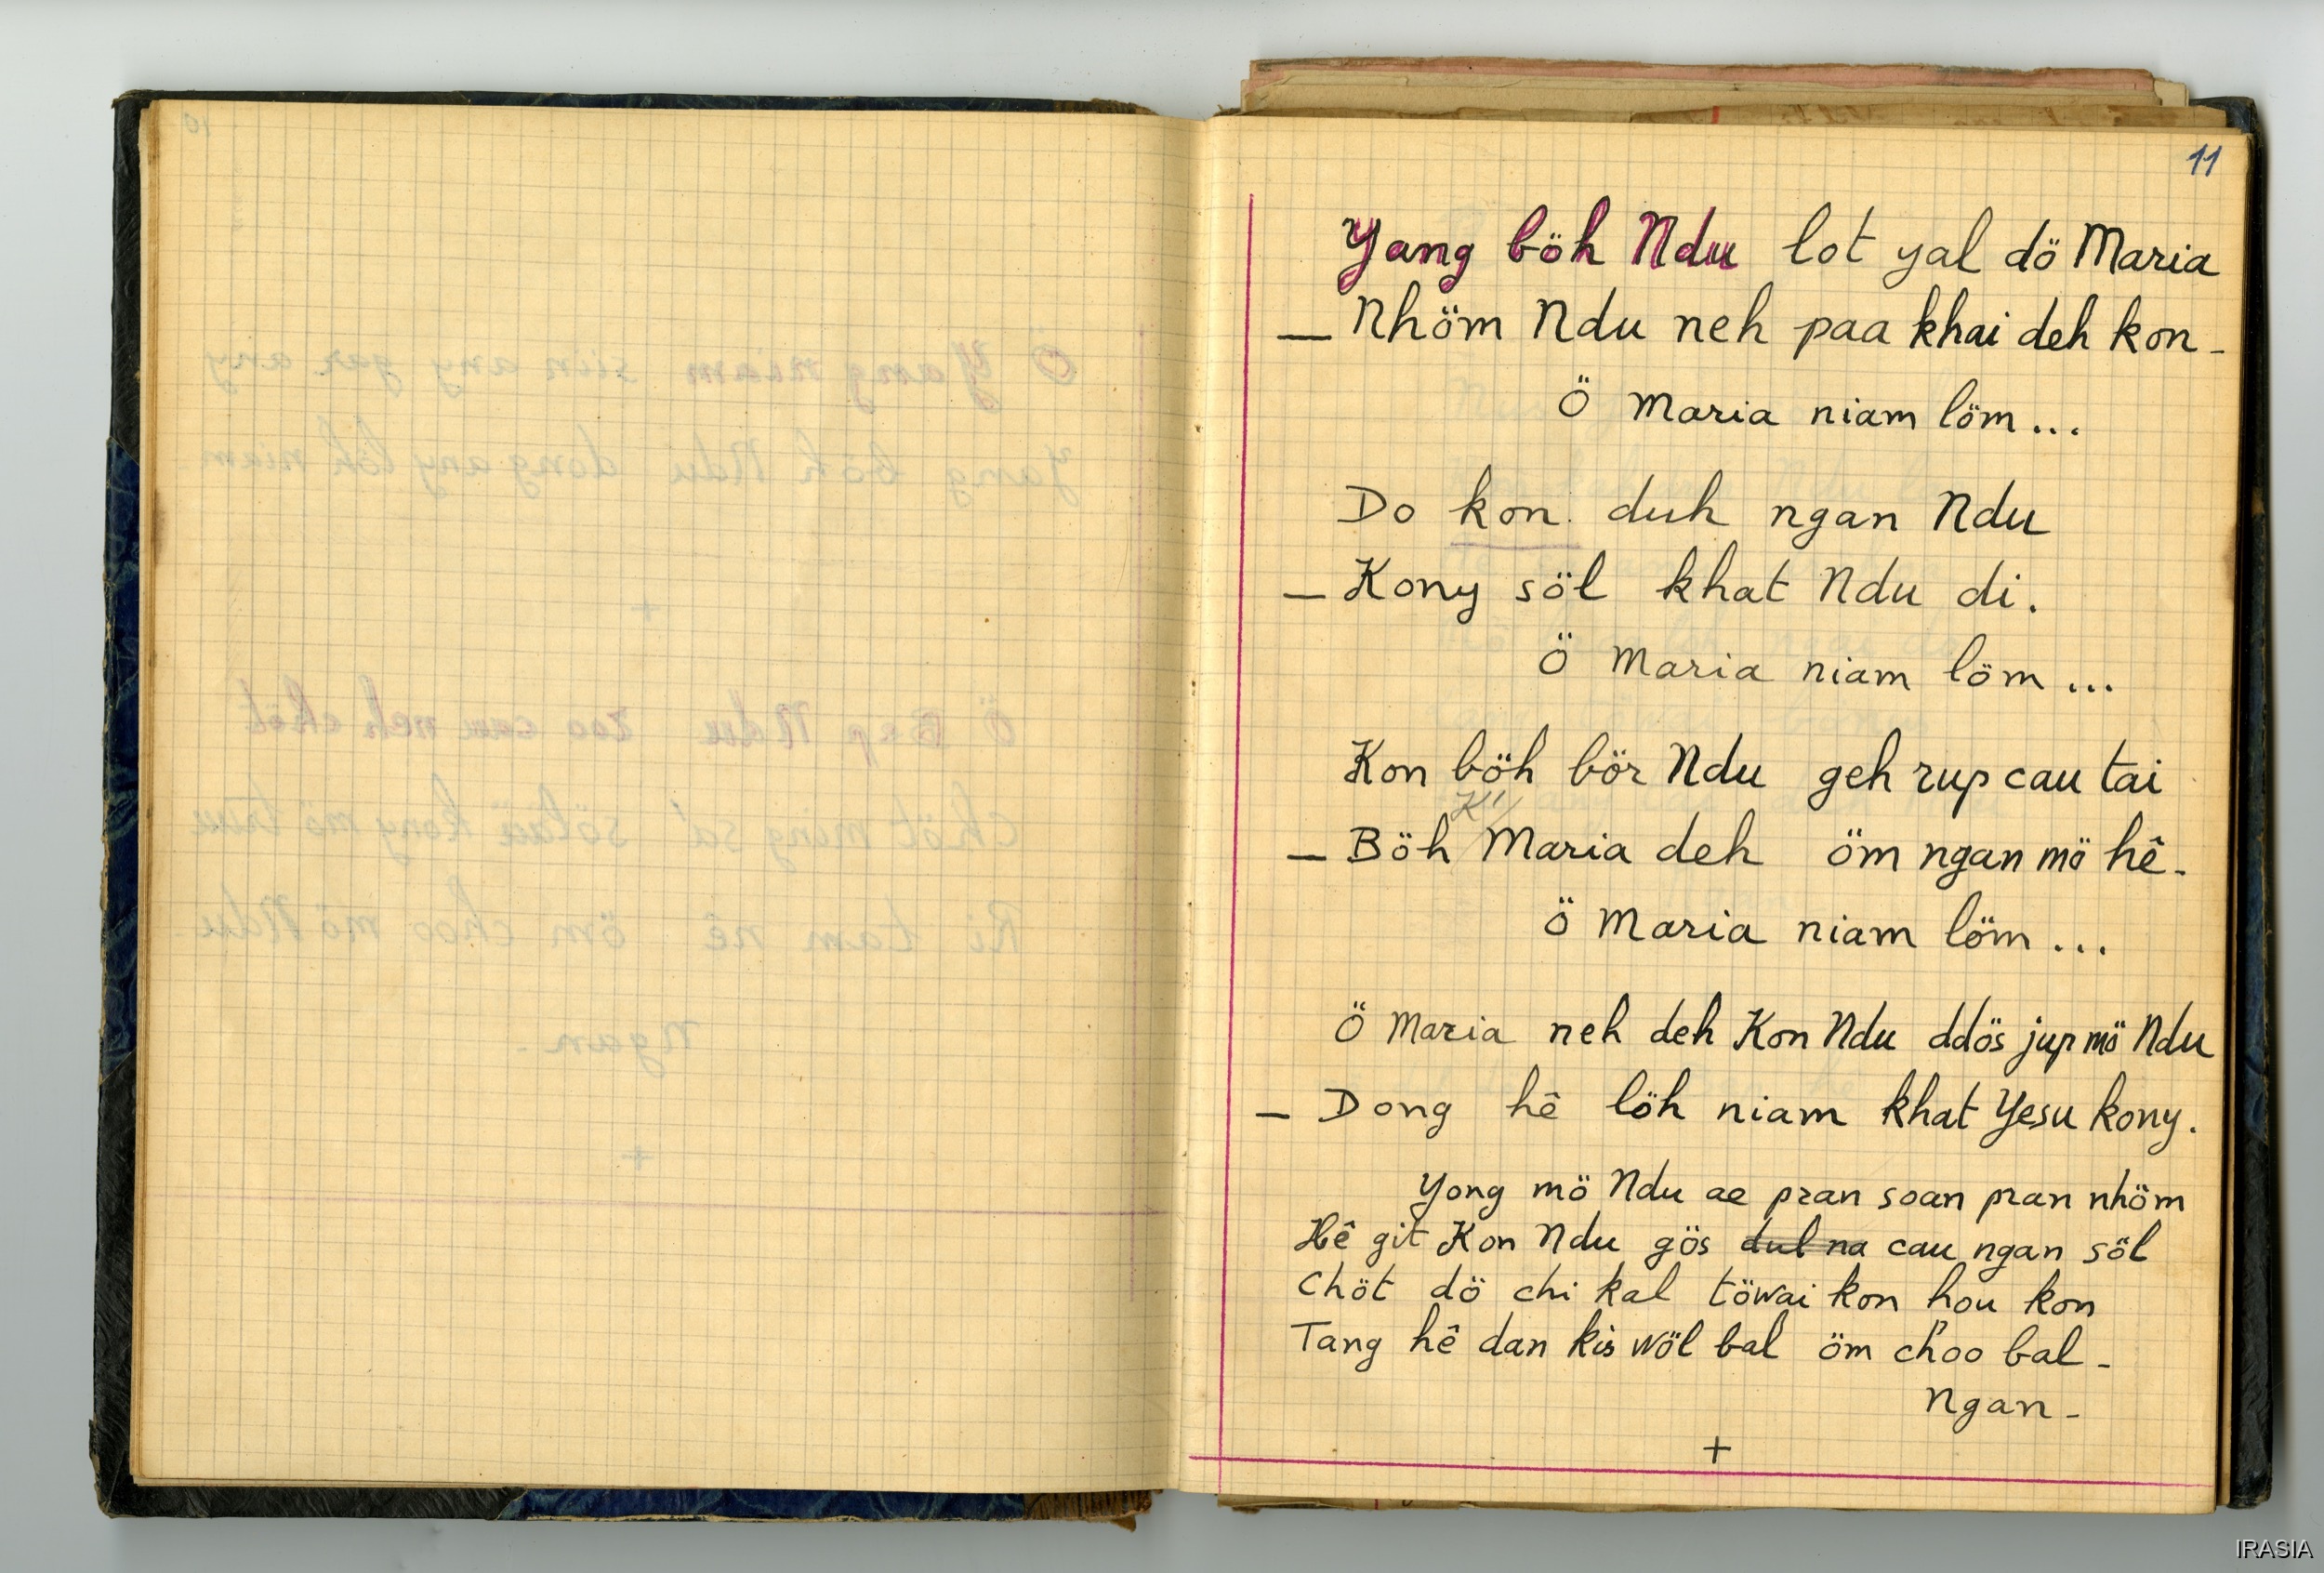 11
Yang böh Ndu lot yal dö Maria
— Nhöm Ndu neh paa khai deh kon -
Ö Maria niam löm...
Do kon duh ngan Ndu
— Kony söl khat Ndu di.
Ö Maria niam löm...
Kon böh bör Ndu geh rup cau tai
K'
— Böh Maria deh öm ngan mö hê -
Ö Maria niam löm...
Ö Maria neh deh Kon Ndu ddös jup mö Ndu
— Dong hê löh niam khat Yesu kony.
Yong mö Ndu ae pran soan pran nhöm
Hê git Kon Ndu gös dul na cau ngan söl
Chöt dö chi kal töwai kon hou kon
Tang hê dan kis wöl bal öm choo bal -
Ngan -
+
IRASIA